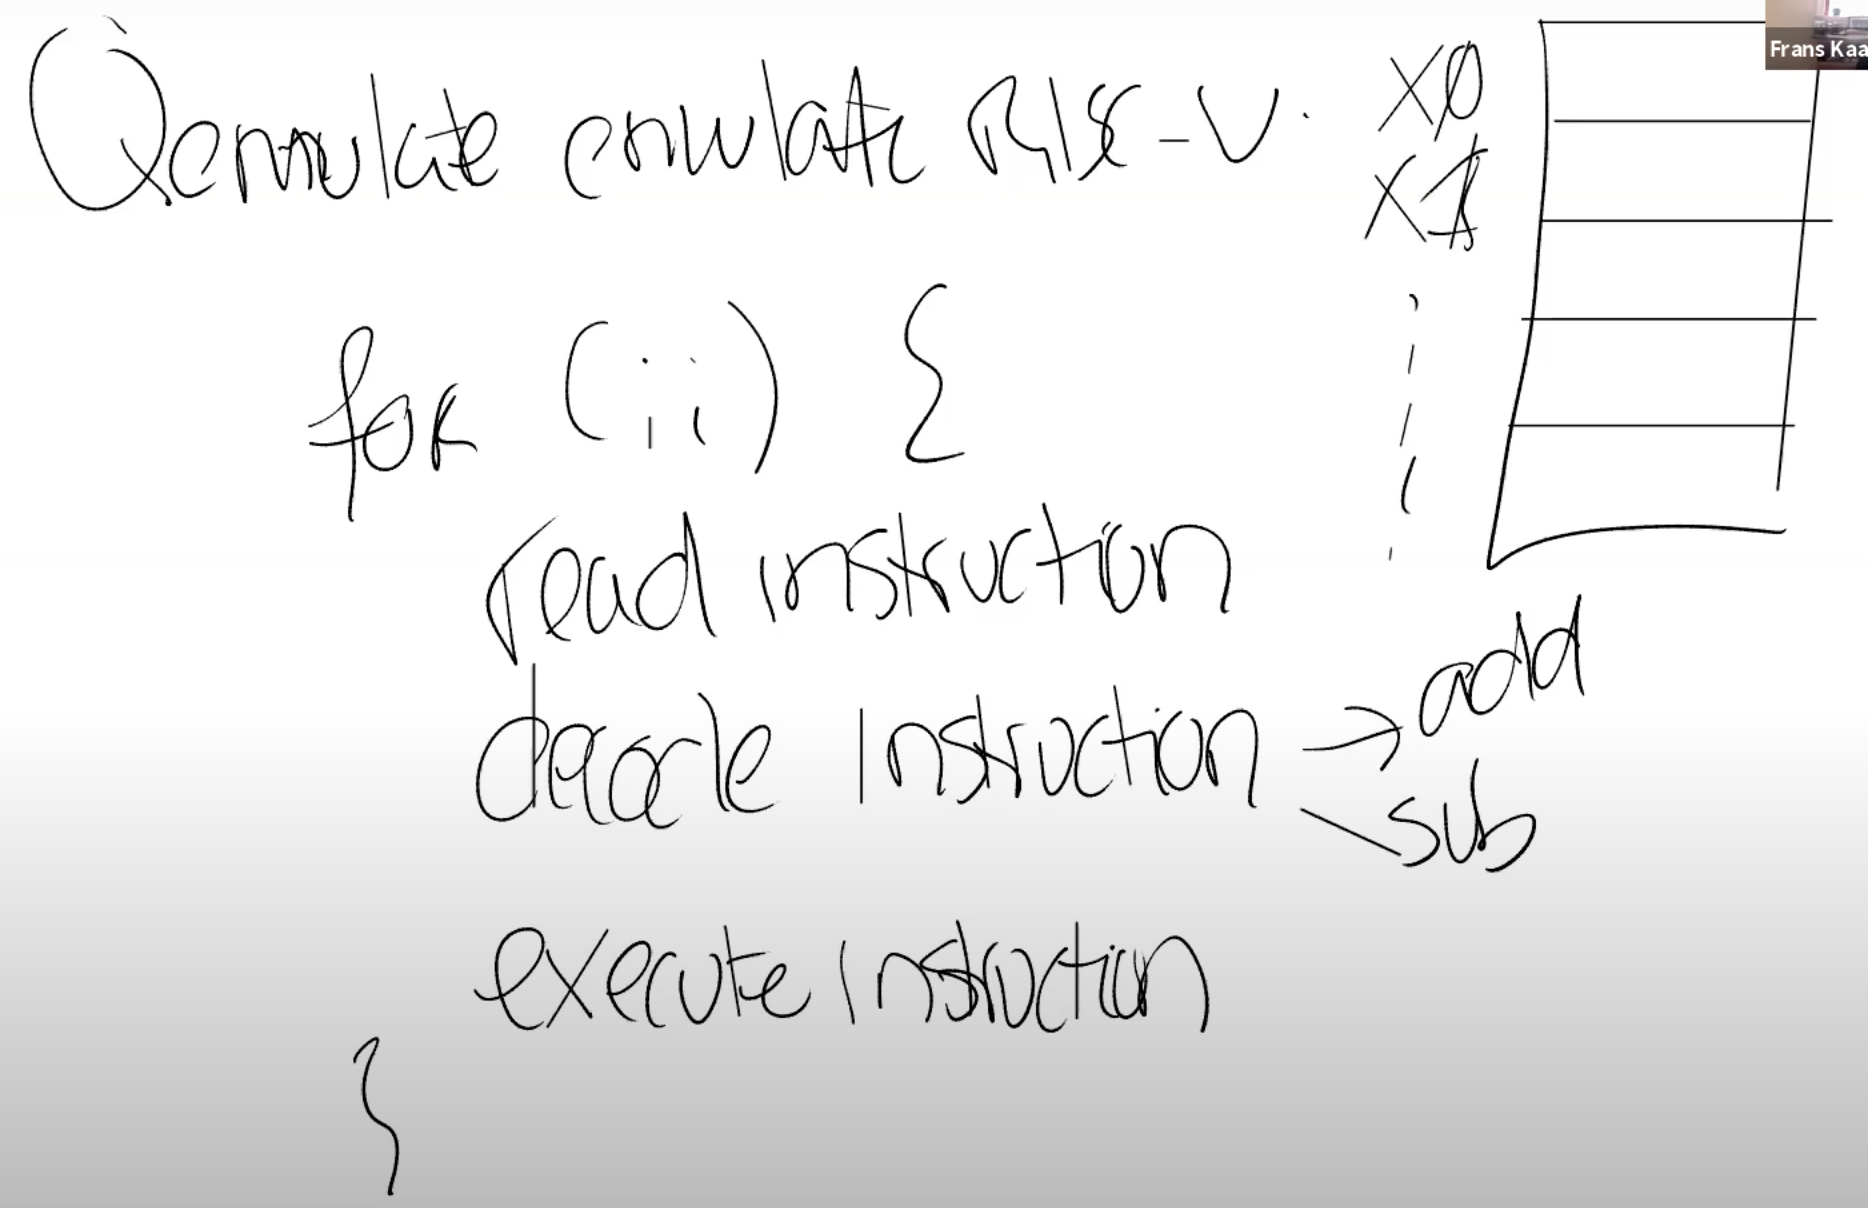 Qemulate emulate RISC-V.
X0
X1
for (;;) {
read instruction
decode instruction → add
sub
execute instruction
}
Frans Kaa